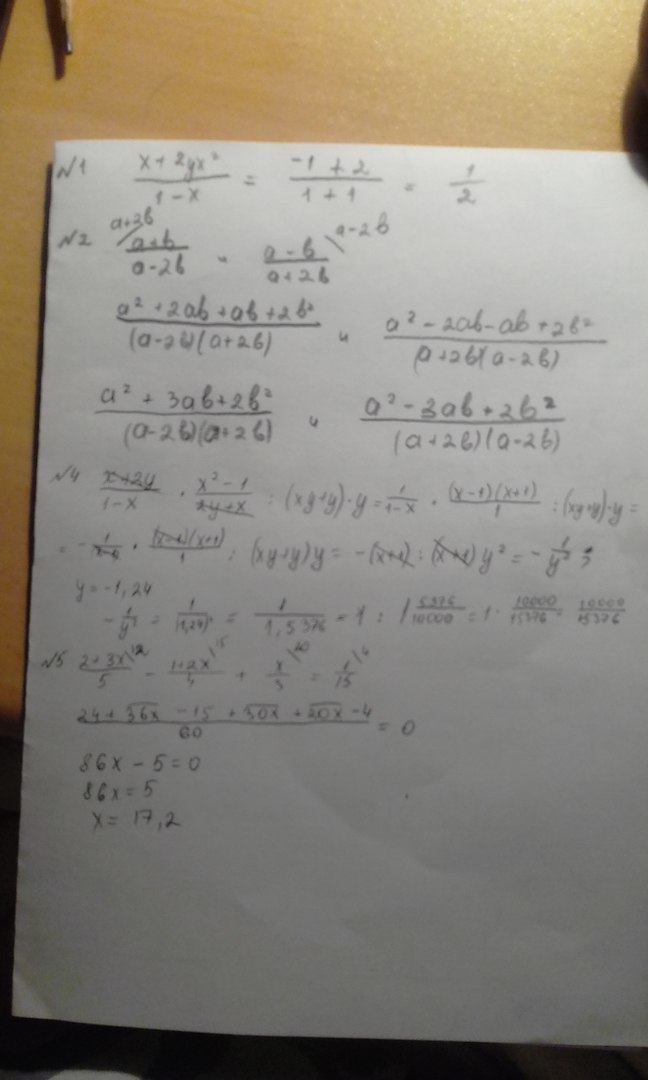 №1 (x+2yx²)/(1-x) = (-1+2)/(1+1) = 1/2
№2 (a+b)/(a-2b) \a+2b и (a-b)/(a+2b) \a-2b
(a²+2ab+ab+2b²)/((a-2b)(a+2b)) и (a²-2ab-ab+2b²)/((a+2b)(a-2b))
(a²+3ab+2b²)/((a-2b)(a+2b)) и (a²-3ab+2b²)/((a+2b)(a-2b))
№4 (x+2y)/(1-x) · (x²-1)/(2y+x) : (xy+y)·y = 1/(1-x) · ((x-1)(x+1))/1 : (xy+y)·y =
= - 1/(x-1) · ((x-1)(x+1))/1 : (xy+y)y = -(x+1) : (x+1)y² = - 1/y² ;
y = -1,24
- 1/y² = 1/(1,24)² = 1/1,5376 = 1 : 1 5376/10000 = 1 · 10000/15376 = 10000/15376
№5 (2+3x)/5 \12 - (1+2x)/4 \15 + x/3 \20 = 1/15 \4
(24+36x-15+30x+20x-4)/60 = 0
86x-5=0
86x=5
x=17,2